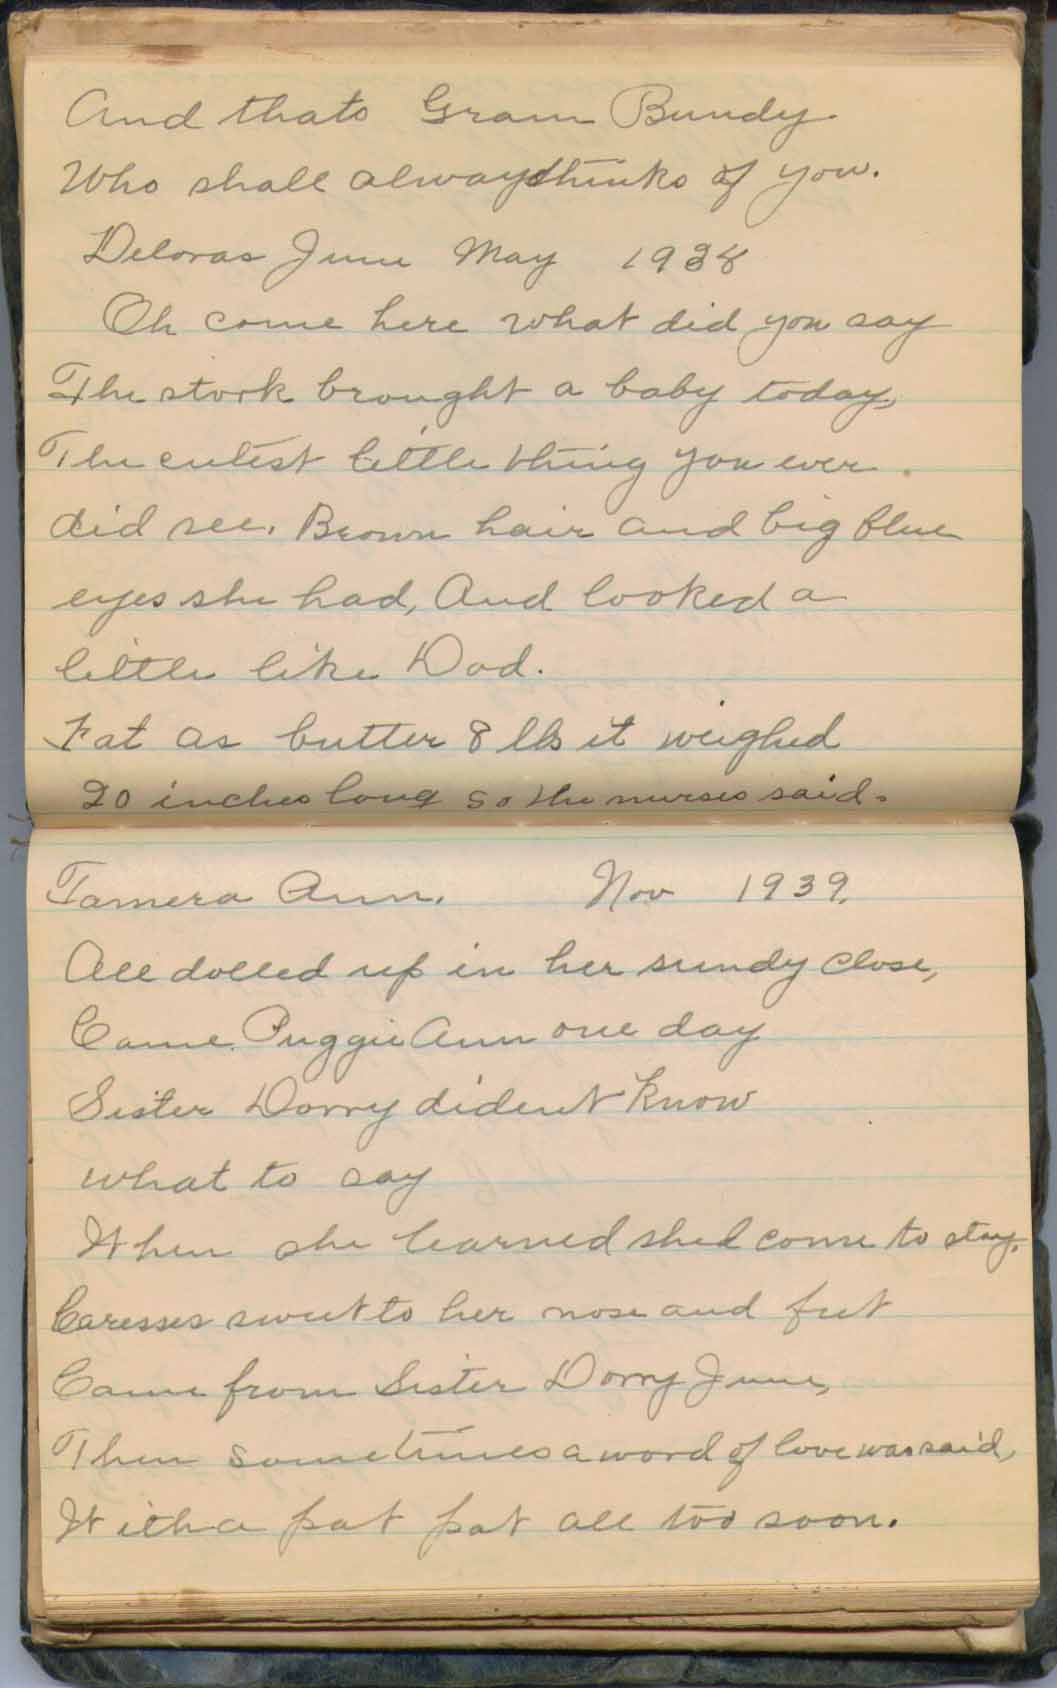 And thats Gram Bundy.
Who shall always thinks of you.
Deloras June May 1938
Oh come here what did you say
The stork brought a baby today,
The cutest little thing you ever
did see. Brown hair and big blue
eyes she had, And looked a
little like Dad.
Fat as butter 8 lbs it weighed
20 inches long so the nurses said.
Tamera Ann. Nov 1939.
All dolled up in her sundy close,
Came Puggie Ann one day
Sister Dorry dident know
what to say
When she learned shed come to stay.
Caresses sweet to her nose and feet
Came from Sister Dorry June,
Then sometimes a word of love was said,
With a pat pat all too soon.